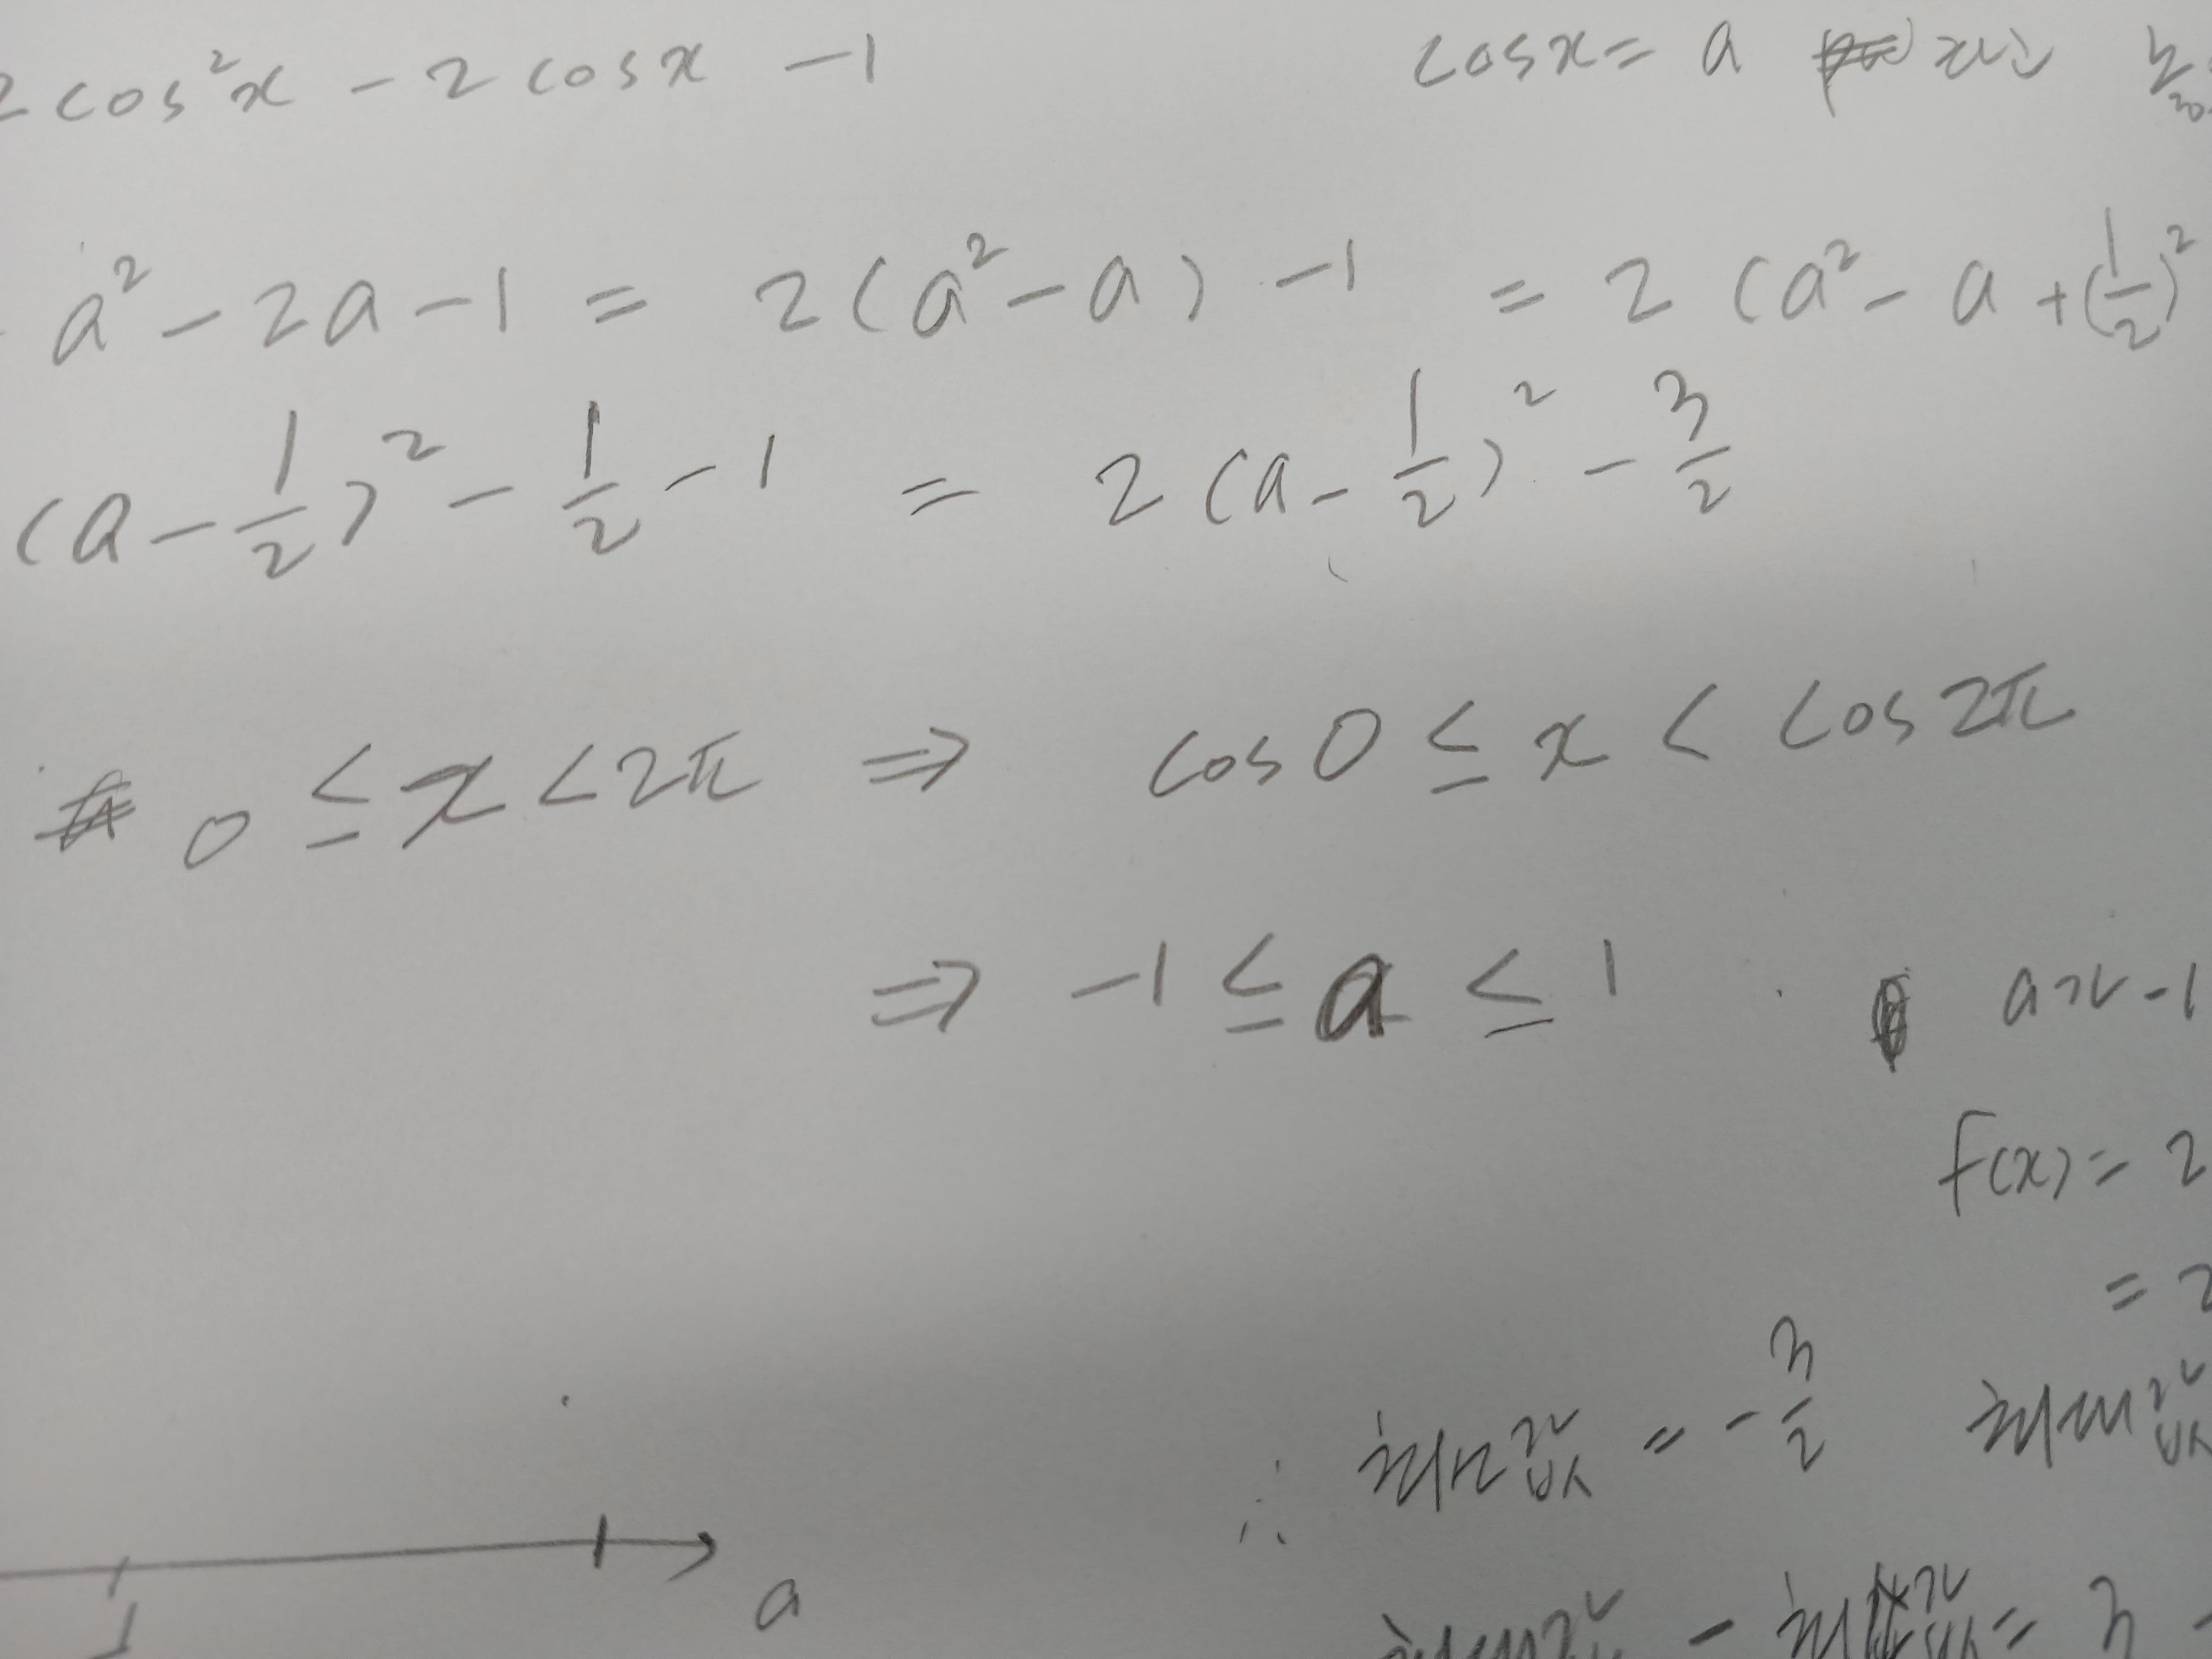 2cos²x - 2cosx - 1 cosx = a
a² - 2a - 1 = 2(a² - a) - 1 = 2(a² - a + (1/2)²
(a - 1/2)² - 1/2 - 1 = 2(a - 1/2)² - 3/2
0 ≤ x < 2π ⇒ cos0 ≤ x < cos2π
⇒ -1 ≤ a ≤ 1 a가 -1
f(x) = 2
= 2
∴ 최소값 = -3/2 최대값
a
최대값 - 최소값 = 3 -